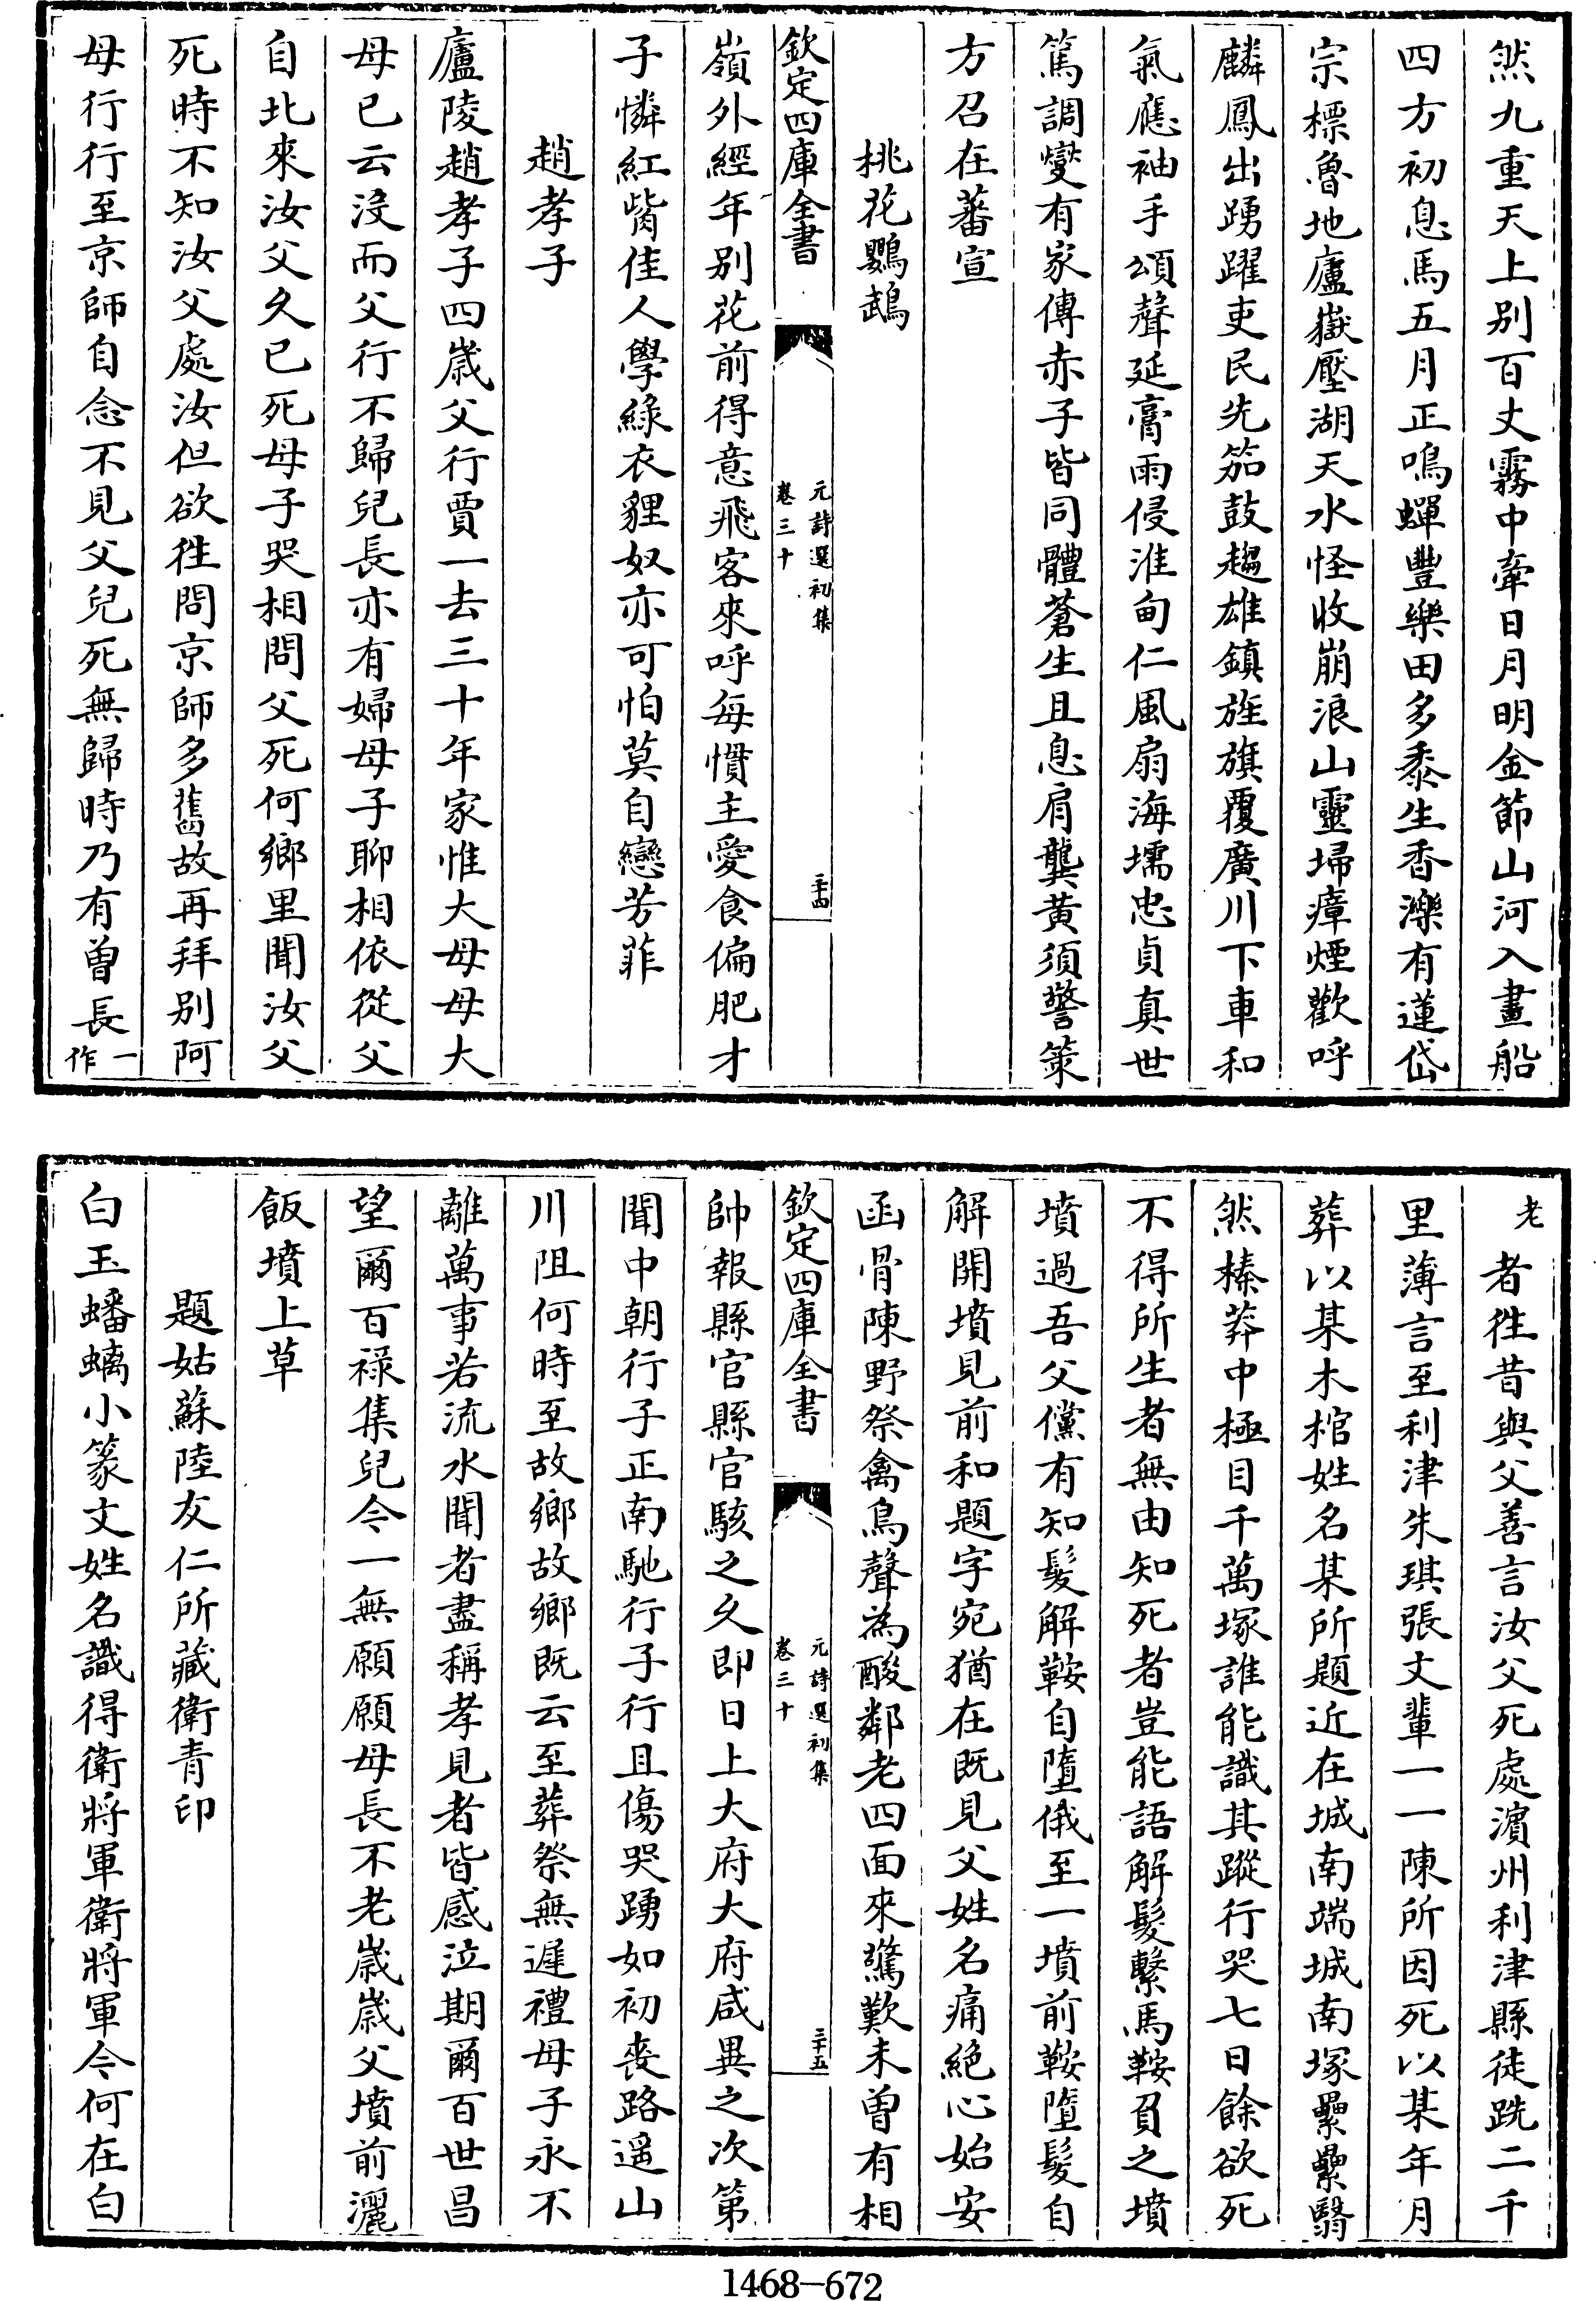 然九重天上别百丈霧中牽日月明金節山河入畫船
四方初息馬五月正鳴蟬豐樂田多黍生香濼有蓮岱
宗標魯地廬嶽壓湖天水怪收崩浪山靈埽瘴煙歡呼
麟鳳出踴躍吏民先笳鼓趨雄鎮旌旗覆廣川下車和
氣應袖手頌聲延膏雨侵淮甸仁風扇海壖忠貞真世
篤調燮有家傳赤子皆同體蒼生且息肩龔黄須警策
方召在蕃宣
桃花鸚鵡
欽定四庫全書
元詩選初集
卷三十
三十四
嶺外經年别花前得意飛客來呼每慣主愛食偏肥才
子憐紅觜佳人學綠衣貍奴亦可怕莫自戀芳菲
趙孝子
廬陵趙孝子四歲父行賈一去三十年家惟大母母大
母已云没而父行不歸兒長亦有婦母子聊相依從父
自北來汝父久已死母子哭相問父死何鄉里聞汝父
死時不知汝父處汝但欲徃問京師多舊故再拜别阿
母行行至京師自念不見父兒死無歸時乃有曾長一作
老者徃昔與父善言汝父死處濵州利津縣徒跣二千
里薄言至利津朱琪張丈輩一一陳所因死以某年月
葬以某木棺姓名某所題近在城南端城南塚纍纍翳
然榛莽中極目千萬塚誰能識其蹤行哭七日餘欲死
不得所生者無由知死者豈能語解髮繫馬鞍負之墳
墳過吾父儻有知髮解鞍自墮俄至一墳前鞍墮髮自
解開墳見前和題字宛猶在既見父姓名痛絶心始安
函骨陳野祭禽鳥聲為酸鄰老四面來驚歎未曾有相
欽定四庫全書
元詩選初集
卷三十
三十五
帥報縣官縣官駭之久即日上大府大府咸異之次第
聞中朝行子正南馳行子行且傷哭踴如初喪路遥山
川阻何時至故鄉故鄉既云至葬祭無遲禮母子永不
離萬事若流水聞者盡稱孝見者皆感泣期爾百世昌
望爾百禄集兒今一無願願母長不老歲歲父墳前灑
飯墳上草
題姑蘇陸友仁所藏衛青印
白玉蟠螭小篆文姓名識得衛將軍衛將軍今何在白
1468—672